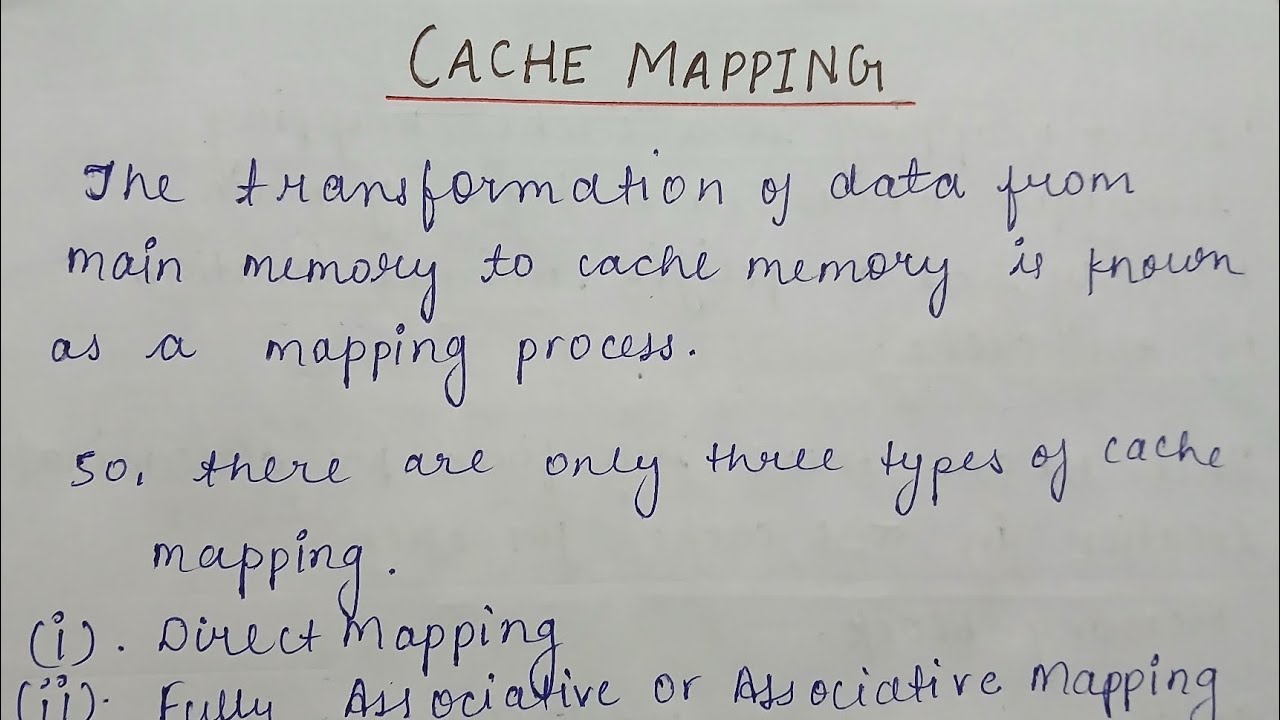 CACHE MAPPING
The transformation of data from
main memory to cache memory is known
as a mapping process.
So, there are only three types of cache
mapping.
(i). Direct Mapping
(ii). Fully Associative or Associative Mapping